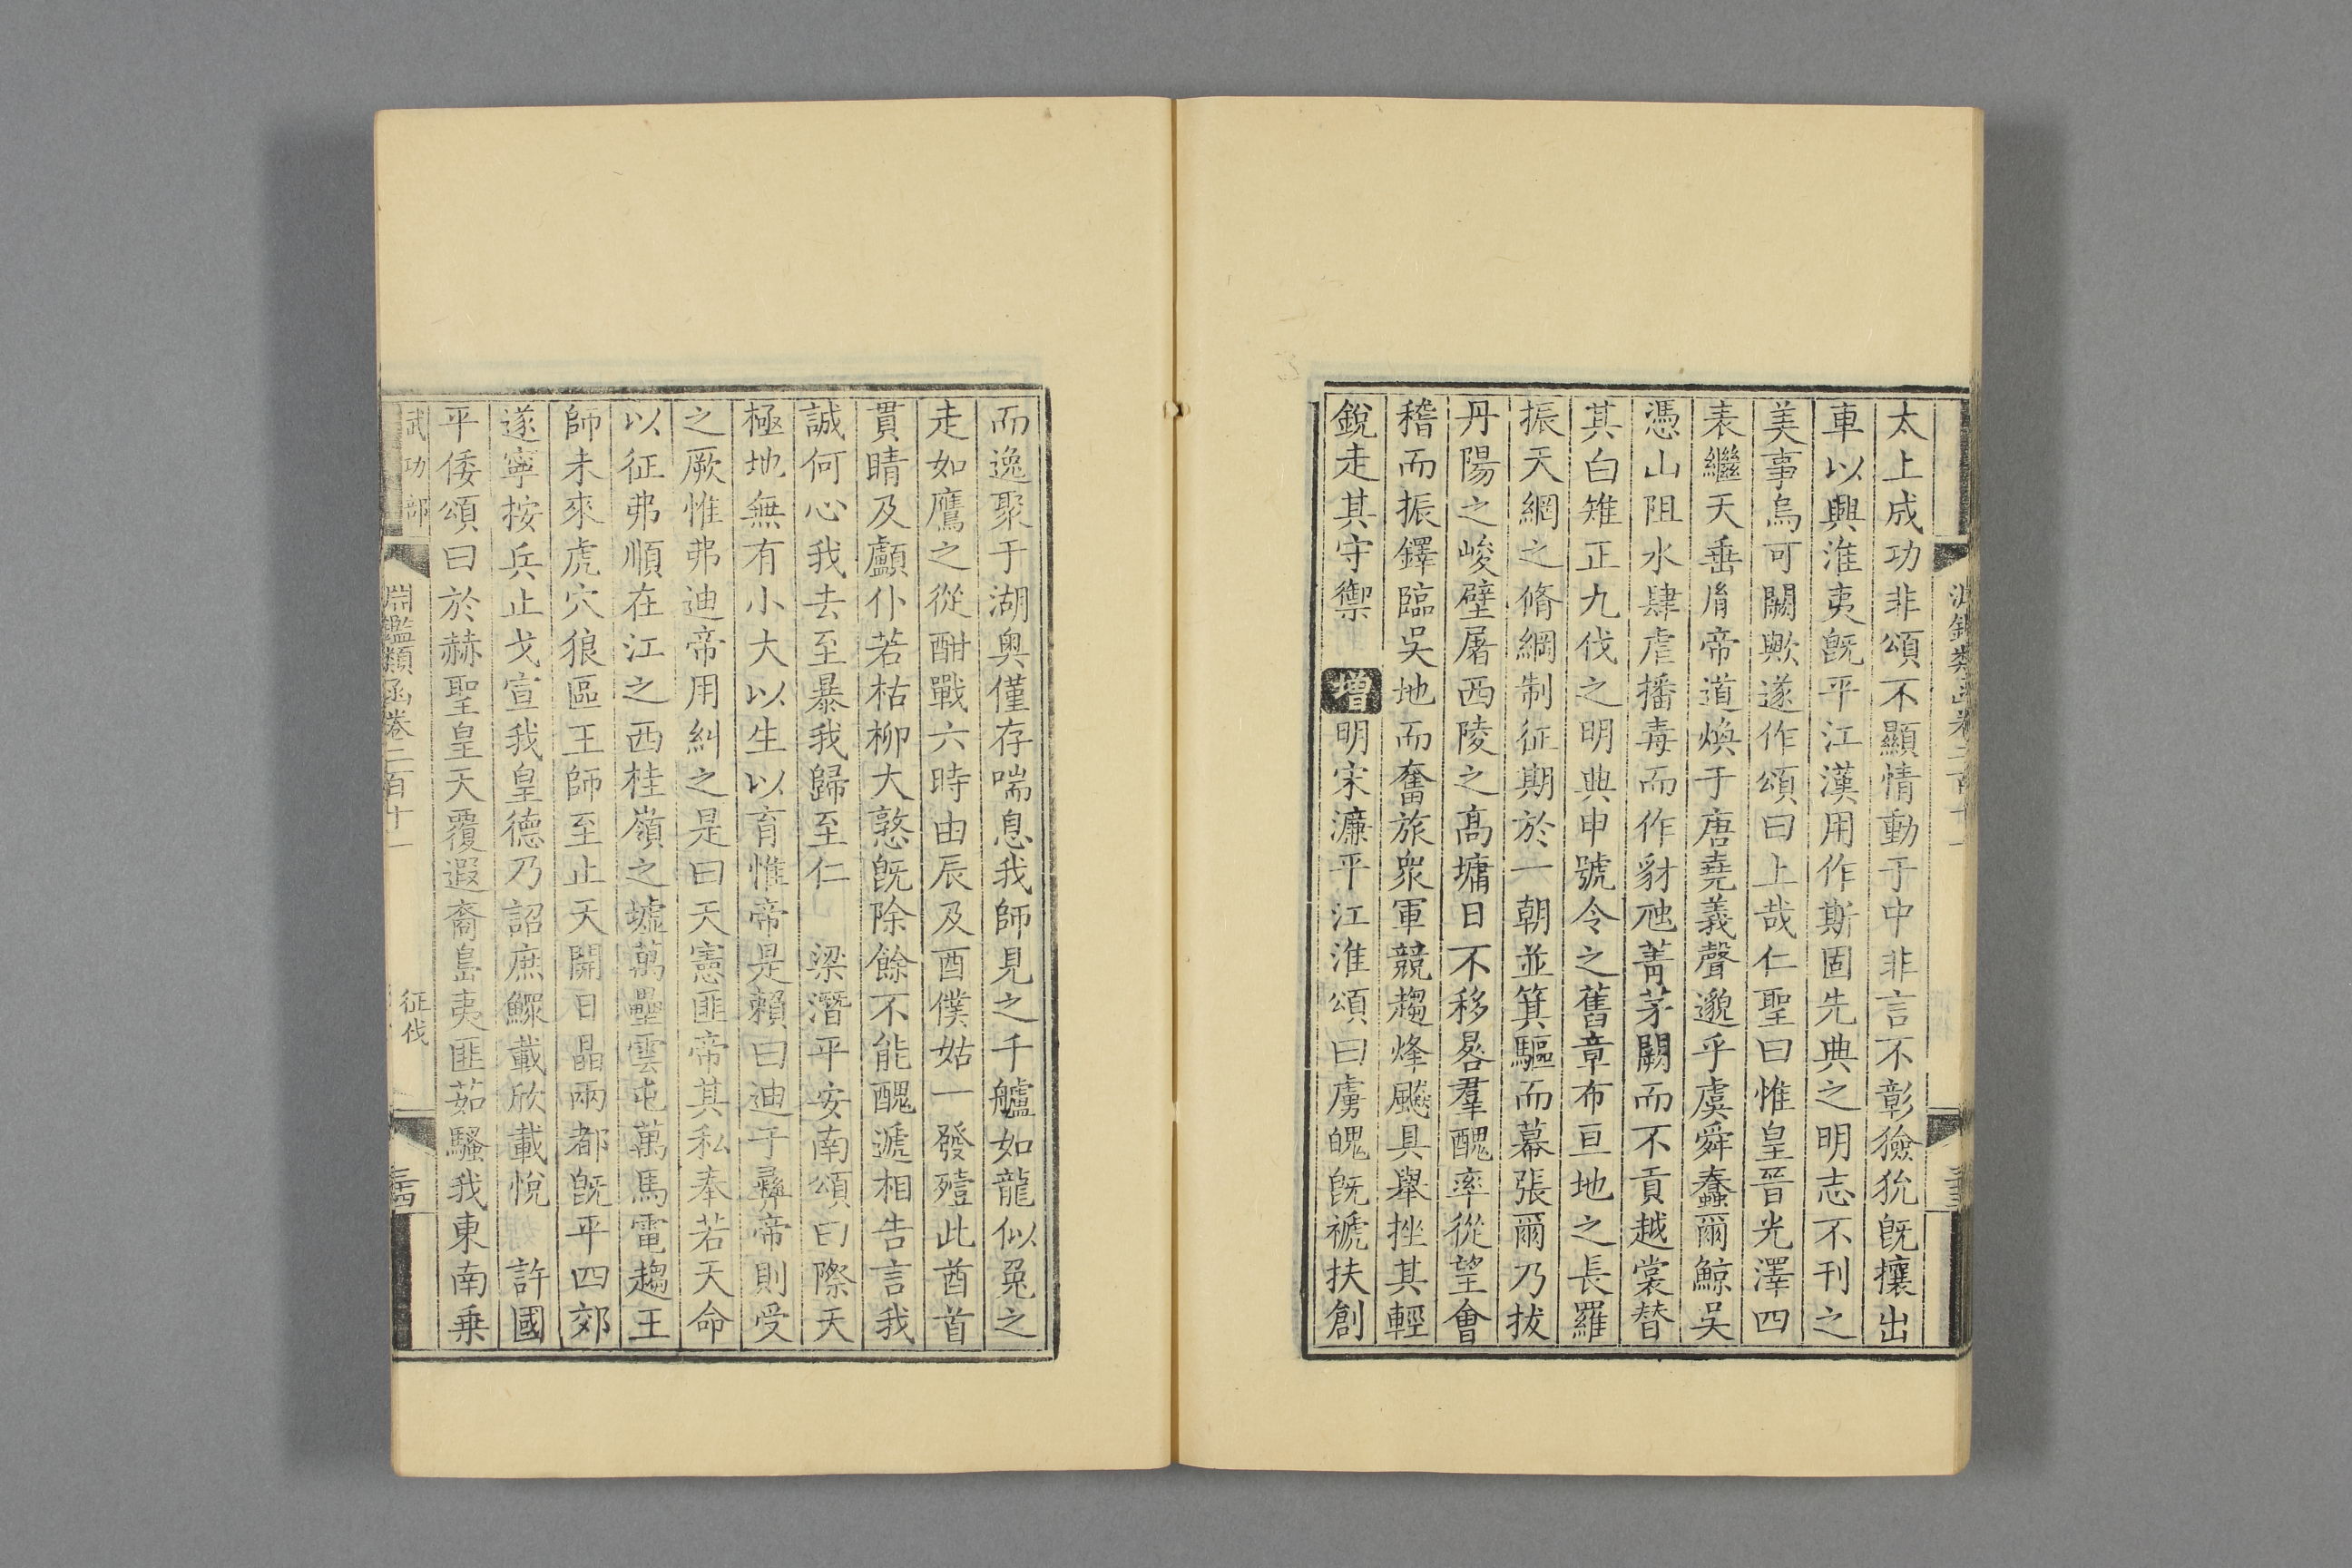 太上成功非頌不顯情動于中非言不彰獫狁旣攘出
車以興淮夷旣平江漢用作斯固先典之明志不刊之
美事烏可闕歟遂作頌曰上哉仁聖曰惟皇晉光澤四
表繼天垂胤帝道煥于唐堯義聲邈乎虞舜蠢爾鯨吳
憑山阻水肆虐播毒而作豺虺菁茅闕而不貢越裳替
其白雉正九伐之明典申號令之舊章布亘地之長羅
振天網之脩綱制征期於一朝並箕驅而慕張爾乃拔
丹陽之峻壁屠西陵之高墉日不移晷羣醜率從望會
稽而振鐸臨吳地而奮旅衆軍競趨烽飈具舉挫其輕
銳走其守禦 增明宋濂平江淮頌曰虜魄旣褫扶創
而逸聚于湖奥僅存喘息我師見之千艫如龍似兔之
走如鷹之從酣戰六時由辰及酉僕姑一發殪此酋首
貫睛及顱仆若枯柳大憝旣除餘不能醜遞相告言我
誠何心我去至暴我歸至仁 梁潛平安南頌曰際天
極地無有小大以生以育惟帝是賴曰迪于彞帝則受
之厥惟弗迪帝用糾之是曰天憲匪帝其私奉若天命
以征弗順在江之西桂嶺之墟萬壘雲屯萬馬電趨王
師未來虎穴狼區王師至止天開日晶兩都旣平四郊
遂寧按兵止戈宣我皇德乃詔庶鰥載欣載悅 許國
平倭頌曰於赫聖皇天覆遐裔島夷匪茹騷我東南乗
武功部 淵鑑類函卷二百十一 征伐 三十四